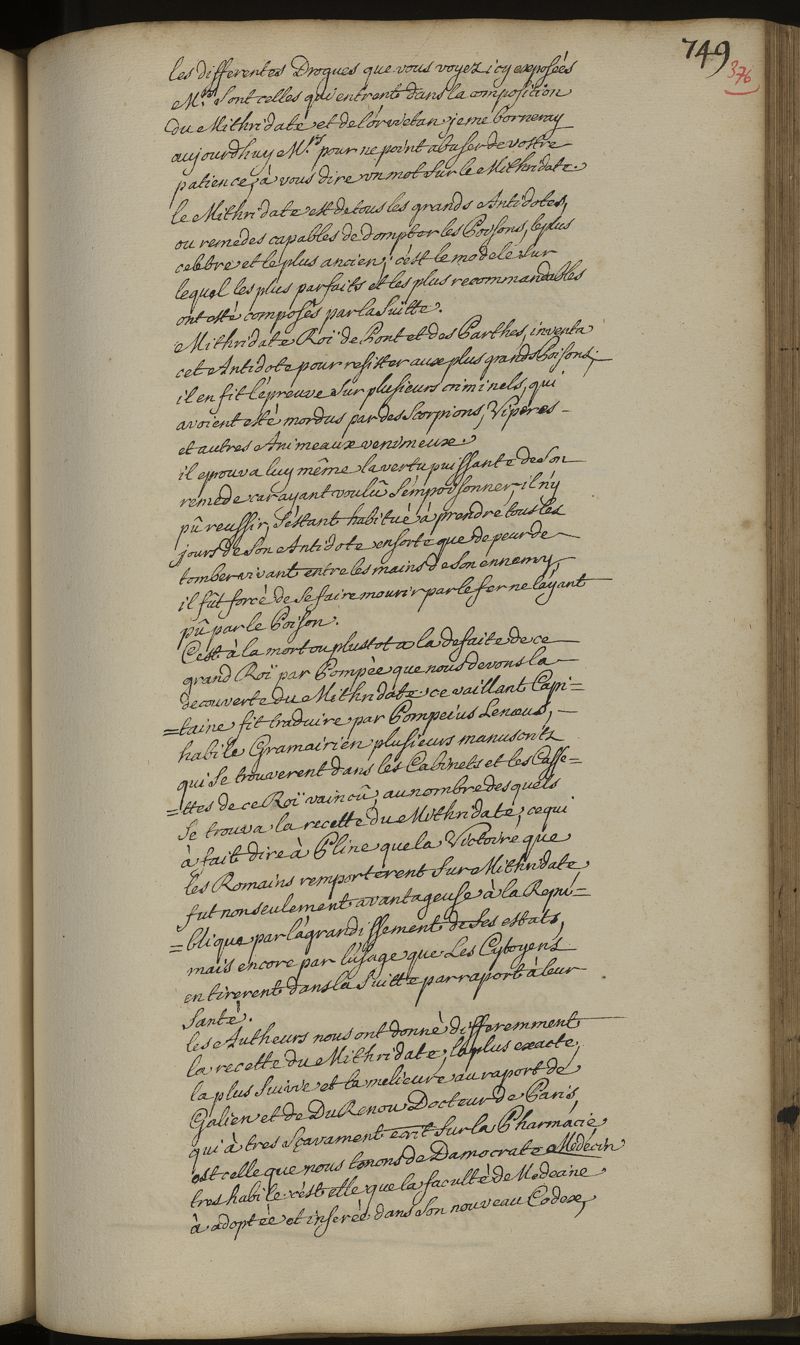 749
376
les differentes Drogues que vous voyez icy exposées
Mrs. sont celles qui entrent dans la composition
du Mithridate et de l'orvietan, je me borneray
aujourdhuy Mrs. pour ne point abuser de vostre
patience, à vous dire un mot sur le Mithridate.
le Mithridate est de tous les grands Antidotes,
ou remedes capables de dompter les Poisons, le plus
celebre et le plus ancien; c'est le modele sur
lequel les plus parfaits et les plus recommandables
ont esté composés par la suitte.
Mithridate Roï de Pont et des Parthes, inventa
cet Antidote pour resister aux plus grands Poisons,
il en fit l'épreuve sur plusieurs criminels, qui
avoient esté mordus par des Scorpions, Viperes -
et autres Animeaux venimeux.
il eprouva luy même la vertu puissante de son
remede car ayant voulû s'empoisonner, il n'y
pû reussir, s'estant habitué à prendre tous les
jours de son Antidote ensorte que de peur de
tomber vivant entre les mains de son ennemy,
il fût forcé de se faire mourir par le fer ne l'ayant
pû par le Poison.
C'est à la mort ou plustot a la defaite de ce
grand Roï par Pompée que nous devons la
decouverte du Mithridate, ce vaillant Capi=
=taine fit traduire par Pompeïus Lenœus, -
habile Gramairien plusieurs manuscrits
qui se trouverent dans les Cabinets et les Casse=
=ttes de ce Roï vaincû, au nombre desquels
se trouva la recette du Mithridate; ce qui
à fait dire à Pline que la Victoire que
les Romains remporterent sur Mithridate,
fut non seulement avantageuse à la Repu=
=blique par l'agrandissement de ses estats,
mais encore par l'usage que Les Cytoyens
en tirerent dans la suitte par raport à leur
santé.
les Autheurs nous ont donné differemment
la recette du Mithridate, la plus exacte,
la plus suivie et la melieure au raport de
Galien et de Du Renou Docteur de Paris,
qui à tres sçavament ecrit sur la Pharmacie,
est celle que nous tenons de Damocrate Medecin
tres habile. c'est elle que la faculté de Medecine
à adoptée et inserée dans son nouveau Codex,